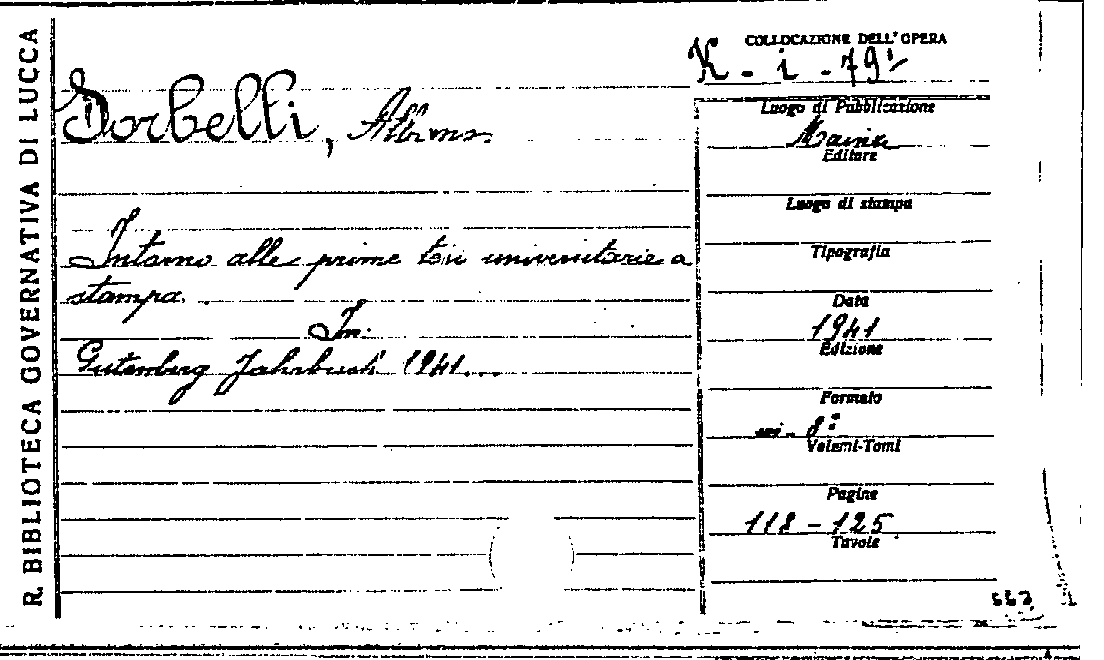 R. BIBLIOTECA GOVERNATIVA DI LUCCA
Sorbelli, Albano
Intorno alle prime tesi universitarie a
stampa.
In:
Gutenberg Jahrbuch 1941...
COLLOCAZIONE DELL'OPERA
K - i - 79
Luogo di Pubblicazione
Mainz
Editore
Luogo di stampa
Tipografia
Data
1941
Edizione
Formato
in - 8º
Volumi-Tomi
Pagine
118 - 125
Tavole